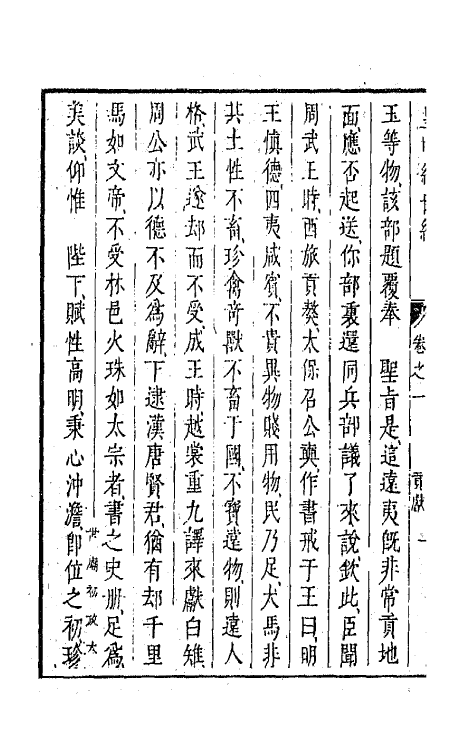 皇明經世編
卷之一
貢獻
一
玉等物該部題覆奉　聖旨是這遠夷旣非常貢地
面應否起送你部裏還同兵部議了來說欽此臣聞
周武王時西旅貢獒太保召公奭作書戒于王曰明
王愼德四夷咸賓不貴異物賤用物民乃足犬馬非
其土性不畜珍禽奇獸不畜于國不寶遠物則遠人
格武王遂却而不受成王時越裳重九譯來獻白雉
周公亦以德不及爲辭下逮漢唐賢君猶有却千里
馬如文帝不受林邑火珠如太宗者書之史册足爲
美談仰惟　陛下賦性高明秉心沖澹卽位之初珍
世廟初政大